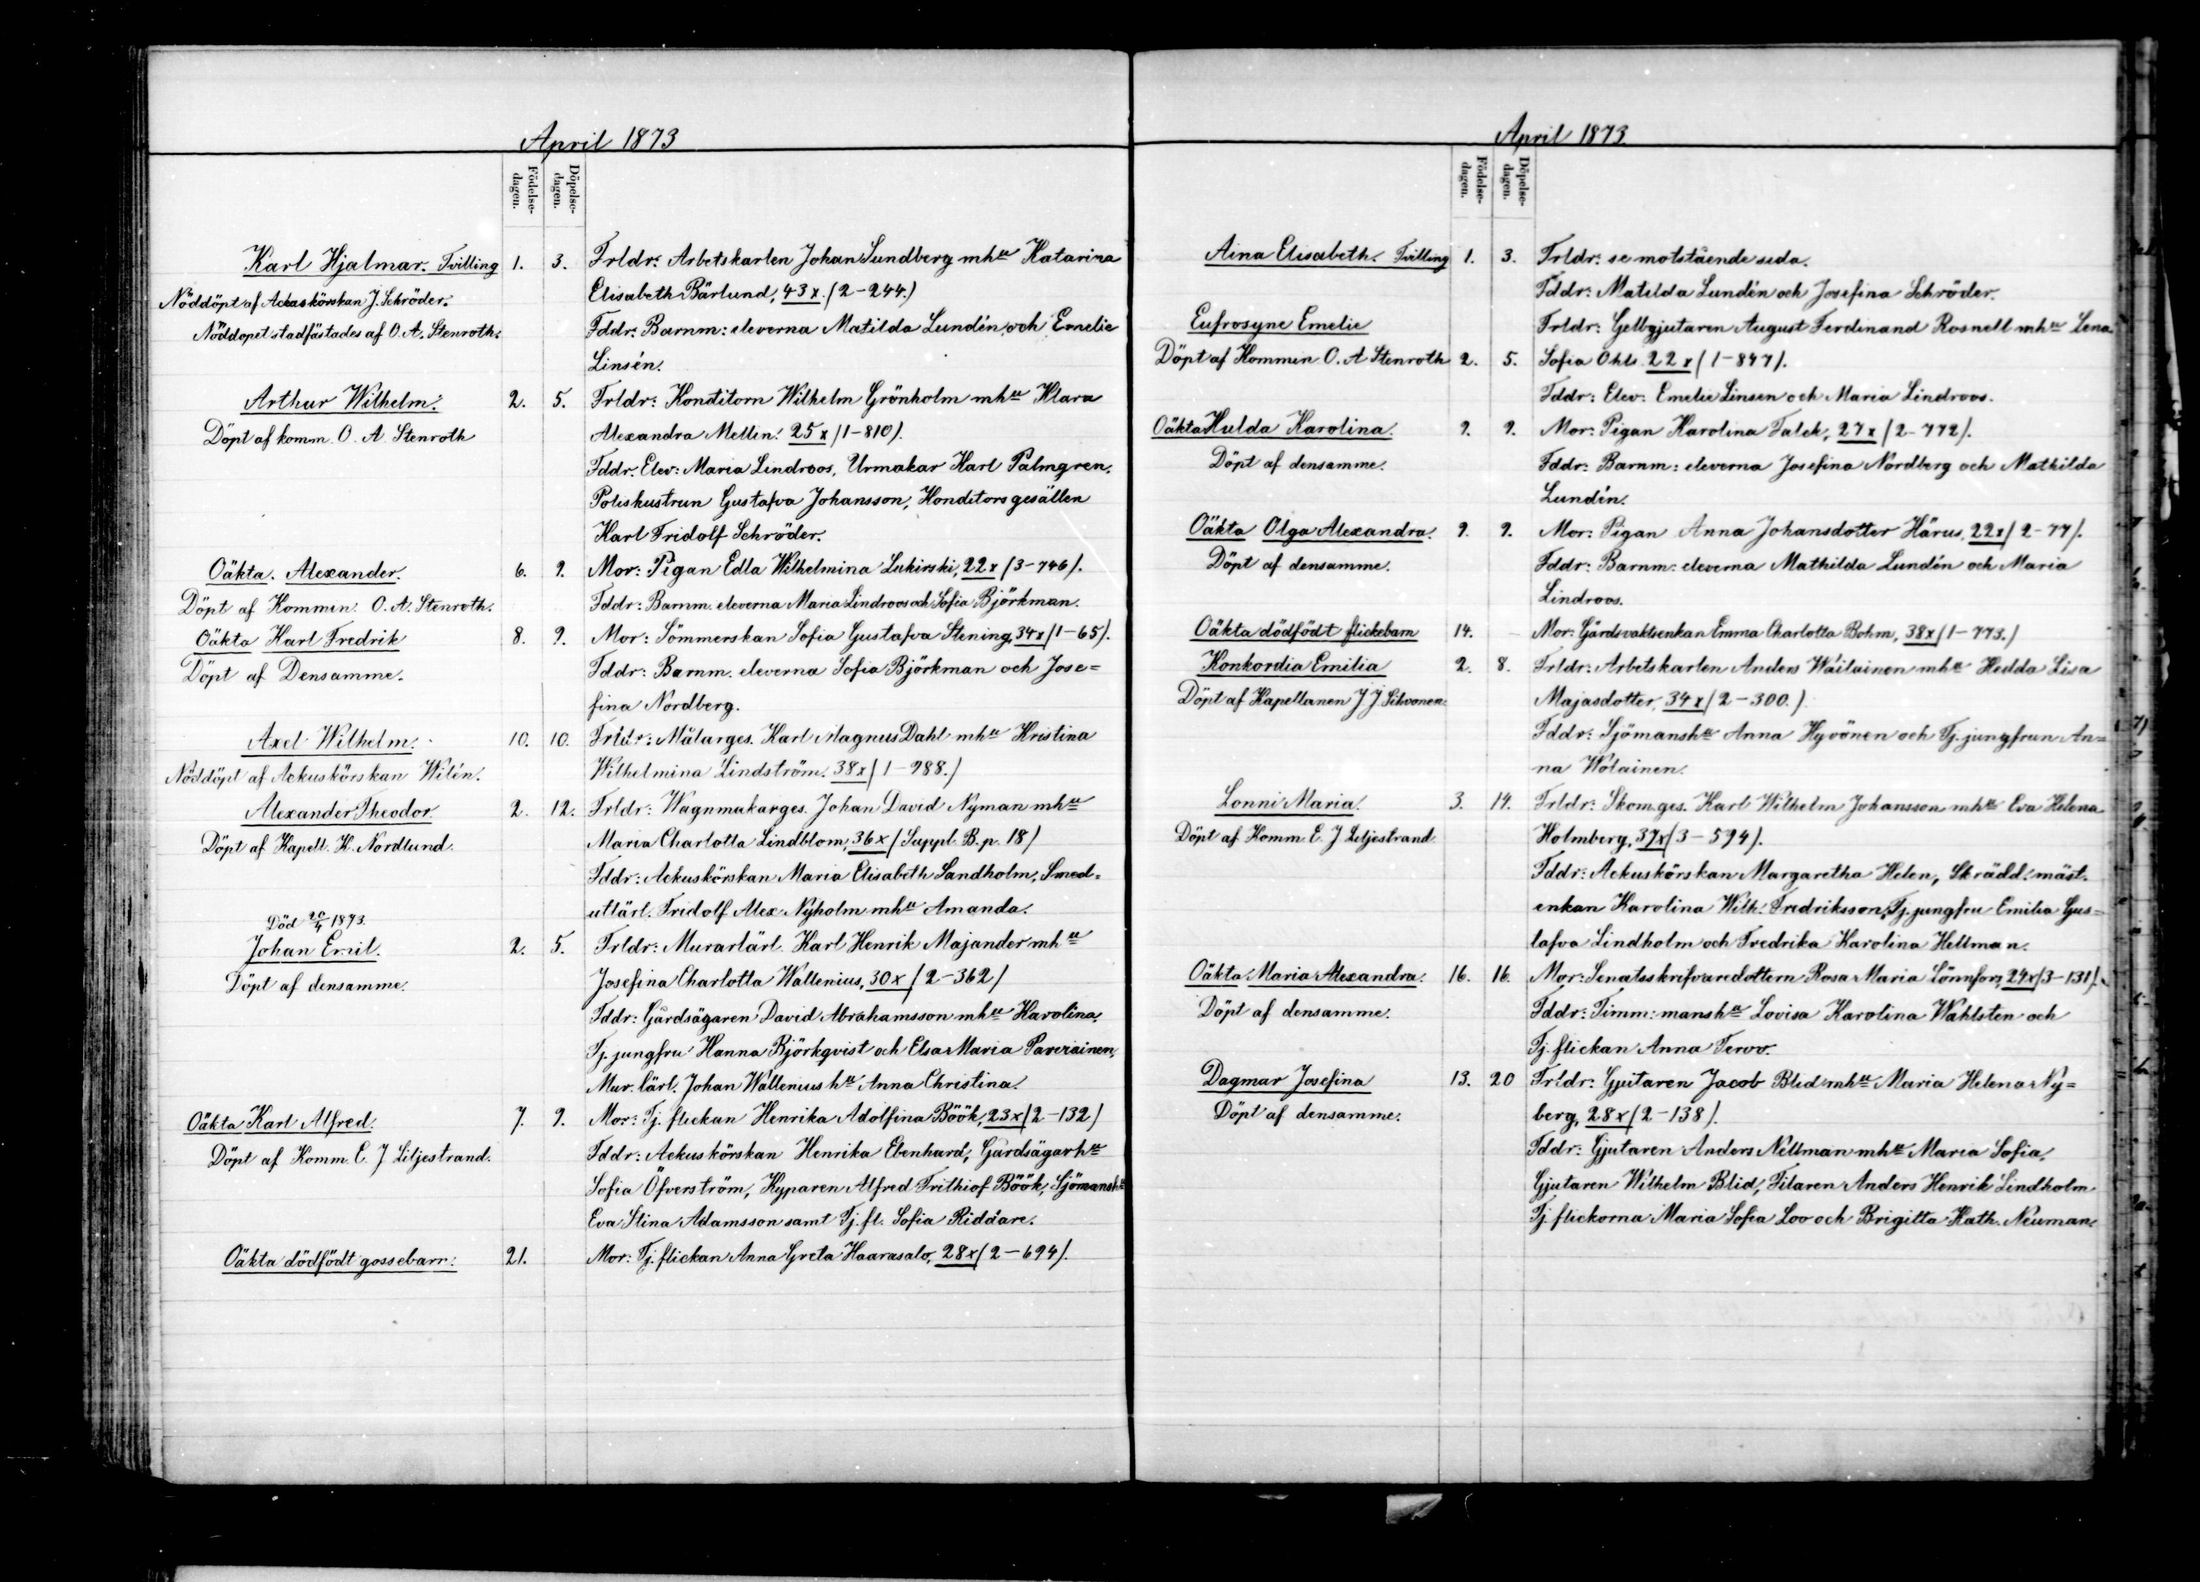 April 1873
Födelse-
dagen.
Döpelse-
dagen.
Karl Hjalmar. Tvilling 1. 3. Frldr: Arbetskarlen Johan Sundberg mhu Katarina
Nöddöpt af Ackuskörskan J. Schröder. Elisabeth Bärlund, 43 x. (2-244.)
Nöddopet stadfästades af O. A. Stenroth. Fddr: Barnm: eleverna Matilda Lundén och Emelie
Linsén.
Arthur Wilhelm. 2. 5. Frldr: Konditorn Wilhelm Grönholm mhu Klara
Döpt af komm. O. A Stenroth Alexandra Mellin. 25 x (1-810).
Fddr. Elev: Maria Lindroos, Urmakar Karl Palmgren.
Poliskustrun Gustafva Johansson, Konditorsgesällen
Karl Fridolf Schröder.
Oäkta. Alexander. 6. 9. Mor: Pigan Edla Wilhelmina Lukirski, 22 x (3-746).
Döpt af Kommin. O. A. Stenroth. Fddr: Barnm. eleverna Maria Lindroos och Sofia Björkman.
Oäkta Karl Fredrik 8. 9. Mor: Sömmerskan Sofia Gustafva Stening, 34x (1-65).
Döpt af Densamme. Fddr: Barnm. eleverna Sofia Björkman och Jose=
fina Nordberg.
Axel Wilhelm. 10. 10. Frldr: Målarges. Karl Magnus Dahl mhu Kristina
Nöddöpt af Ackuskörskan Wilén. Wilhelmina Lindström. 38x (1-988.)
Alexander Theodor. 2. 12. Frldr: Wagnmakarges. Johan David Nyman mhu
Döpt af Kapell. K. Nordlund. Maria Charlotta Lindblom, 36x (Suppl. B. p. 18)
Fddr: Ackuskörskan Maria Elisabeth Sandholm, Smed=
utlärl. Fridolf Alex Nyholm mhu Amanda.
Död 20/4 1873.
Johan Emil. 2. 5. Frldr: Murarlärl. Karl Henrik Majander mhu
Döpt af densamme. Josefina Charlotta Wallenius, 30x (2-362)
Fddr: Gårdsägaren David Abrahamsson mhu Karolina.
Tj. jungfru Hanna Björkqvist och Elsa Maria Paveriainen,
Mur. lärl. Johan Wallenius hu Anna Christina.
Oäkta Karl Alfred. 7. 9. Mor: Tj. flickan Henrika Adolfina Böök, 23x (2-132)
Döpt af Komm. E. J Liljestrand. Fddr: Ackuskörskan Henrika Ebenhard, Gårdsägarhu
Sofia Öfverström, Kyparen Alfred Frithiof Böök, Sjömanshu
Eva Stina Adamsson samt Tj. fl. Sofia Riddare.
Oäkta dödfödt gossebarn: 21. Mor: Tj. flickan Anna Greta Haarasalo, 28x (2-694).
April 1873.
Födelse-
dagen.
Döpelse-
dagen.
Aina Elisabeth. Tvilling 1. 3. Frldr: se motstående sida.
Fddr: Matilda Lundén och Josefina Schröder.
Eufrosyne Emelie Frldr: Gelbgjutaren August Ferdinand Rosnell mhu Lena
Döpt af Kommin O. A Stenroth 2. 5. Sofia Ohls. 22 x (1-847).
Fddr: Elev: Emelie Linsen och Maria Lindroos.
Oäkta Hulda Karolina. 9. 9. Mor: Pigan Karolina Falck, 27x (2-772).
Döpt af densamme. Fddr: Barnm: eleverna Josefina Nordberg och Mathilda
Lundén.
Oäkta Olga Alexandra. 9. 9. Mor: Pigan Anna Johansdotter Härus, 22x (2-77).
Döpt af densamme. Fddr: Barnm: eleverna Mathilda Lundén och Maria
Lindroos.
Oäkta dödfödt flickebarn 14. Mor: Gårdsvaktsenkan Emma Charlotta Bohm, 38x (1-773.)
Konkordia Emilia 2. 8. Frldr: Arbetskarlen Anders Wäilainen mhu Hedda Lisa
Döpt af Kapellanen J J Sihvonen. Majasdotter, 34x (2-300.)
Fddr: Sjömanshu Anna Hyvönen och Tj. jungfrun An=
na Wolainen.
Lonni Maria. 3. 14. Frldr: Skom.ges. Karl Wilhelm Johansson mhu Eva Helena
Döpt af Komm. E. J Liljestrand. Holmberg, 37x (3-594).
Fddr: Ackuskörskan Margaretha Helen, Skrädd. mäst.
enkan Karolina Wilh. Fredriksson, Tj. jungfru Emilia Gus=
tafva Lindholm och Fredrika Karolina Hellman.
Oäkta Maria Alexandra. 16. 16. Mor: Senatsskrifvaredottern Rosa Maria Lönnfors, 24x (3-131).
Döpt af densamme. Fddr: Timm: manshu Lovisa Karolina Wahlsten och
Tj. flickan Anna Tervo.
Dagmar Josefina 13. 20 Frldr: Gjutaren Jacob Blid mhu Maria Helena Ny=
Döpt af densamme. berg, 28x (2-138).
Fddr: Gjutaren Anders Nellman mhu Maria Sofia,
Gjutaren Wilhelm Blid, Filaren Anders Henrik Lindholm
Tj. flickorna Maria Sofia Loo och Brigitta Kath. Neuman.